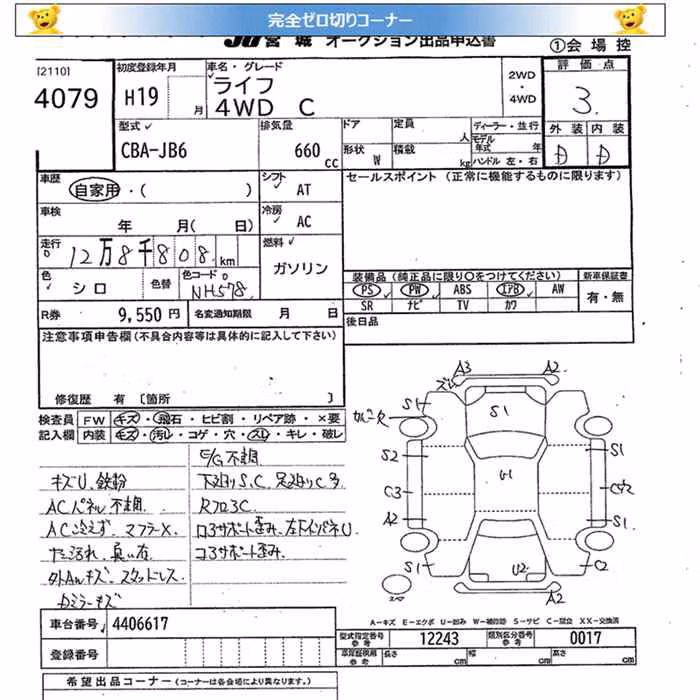 完全ゼロ切りコーナー
JU宮城 オークション出品申込書 ①会場控
[2110]
4079
初度登録年月 H19 月
車名・グレード ライフ
4WD C
2WD・4WD
評価点 3.
型式 CBA-JB6
排気量 660 cc
ドア 形状 W
定員 人
積載 kg
ディーラー・並行
モデル年式 年
ハンドル 左・右
外装 内装
D D
車歴 自家用・( )
シフト AT
セールスポイント (正常に機能するものに限ります)
車検 年 月( 日)
冷房 AC
走行 12万8千808 km
燃料 ガソリン
色 シロ 色替 色コード NH578
装備品 (純正品に限り○をつけてください) 新車保証書
PS PW ABS エアB AW 有・無
SR ナビ TV カワ
R券 9,550 円 名変通知期限 月 日
後日品
注意事項申告欄(不具合内容等は具体的に記入して下さい)
修復歴 有 [箇所 ]
検査員 FW キズ・飛石・ヒビ割・リペア跡・×要
記入欄 内装 キズ・汚レ・コゲ・穴・スレ・キレ・破レ
E/G不調
キズU、鉄粉 下廻りS.C、足廻りC多
ACパネル不調 Rフロ3C
AC冷えず、マフラーX コアサポート歪み、左下インパネU
コアサポート歪み
外AWキズ、スタッドレス
ミラーキズ
A3 A2
S1 S1
S2 U1 S1
C3
A2 S1
S1 U2 C2
A2
A-キズ E-エクボ U-凹み W-補修跡 S-サビ C-腐食 XX-交換済
車台番号 4406617
登録番号
型式指定番号 参考 12243 類別区分番号 参考 0017
車庫証明用 参考 長さ cm 幅 cm 高さ cm
希望出品コーナー (コーナーは各会場により異なります。)